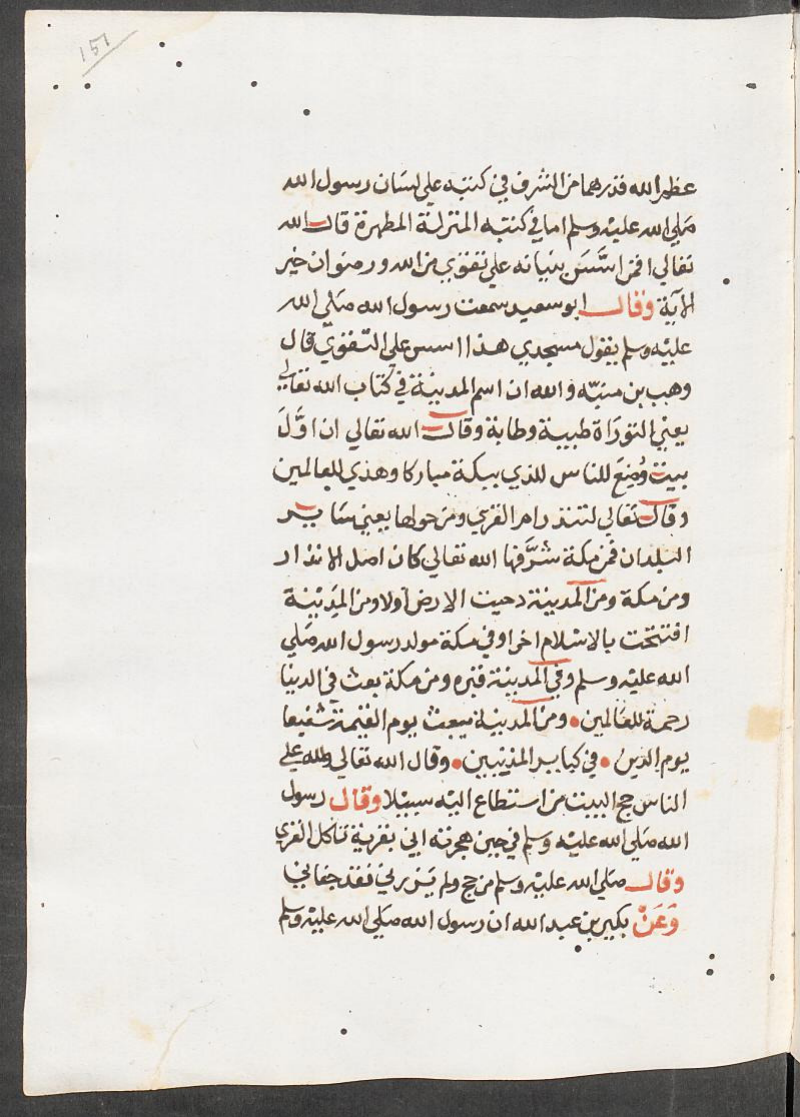 151
عظم الله قدرهما من الشرف في كتبه علي لسان رسول الله
صلي الله عليه وسلم اما في كتبه المنزلة المطهرة قال الله
تعالي افمن اسَّسَ بنيانه علي تقوي من الله ورضوان خير
الآية وقال ابو سعيد سمعت رسول الله صلي الله
عليه وسلم يقول مسجدي هذا اسس على التقوي قال
وهب بن منبّه والله ان اسم المدينة في كتاب الله تعالي
يعني التورَاة طيبة وطابة وقال الله تعالي ان اوَّلَ
بيت وُضِعَ للناس للذي ببكة مباركا وهدي للعالمين
وقال تعالي لتنذر ام القري ومن حولها يعني سَاير
البلدان فمن مكة شرَّفها الله تعالي كان اصل الانذار
ومن مكة ومن المدينة دحيت الارض اولا ومن المدِينة
افتتحت بالاسْلام اخرا وفي مكة مولد رسول الله صلي
الله عليه وسلم وفي المدينة قبره ومن مكة بعث في الدنيا
رحمة للعالمين • ومن المدينة يبعث يوم القيمة شفيعا
يوم الدين • في كبابر المذنبين • وقال الله تعالي ولله علي
الناس حج البيت من استطاع اليه سبيلا وقال رسول
الله صلي الله عليه وسلم في حين هجرته اني بقرية تاكل القري
وقال صلي الله عليه وسلم من حج ولم يَزرني فقد جفاني
وَعَنْ بكير بن عبد الله ان رسول الله صلي الله عليه وسلم